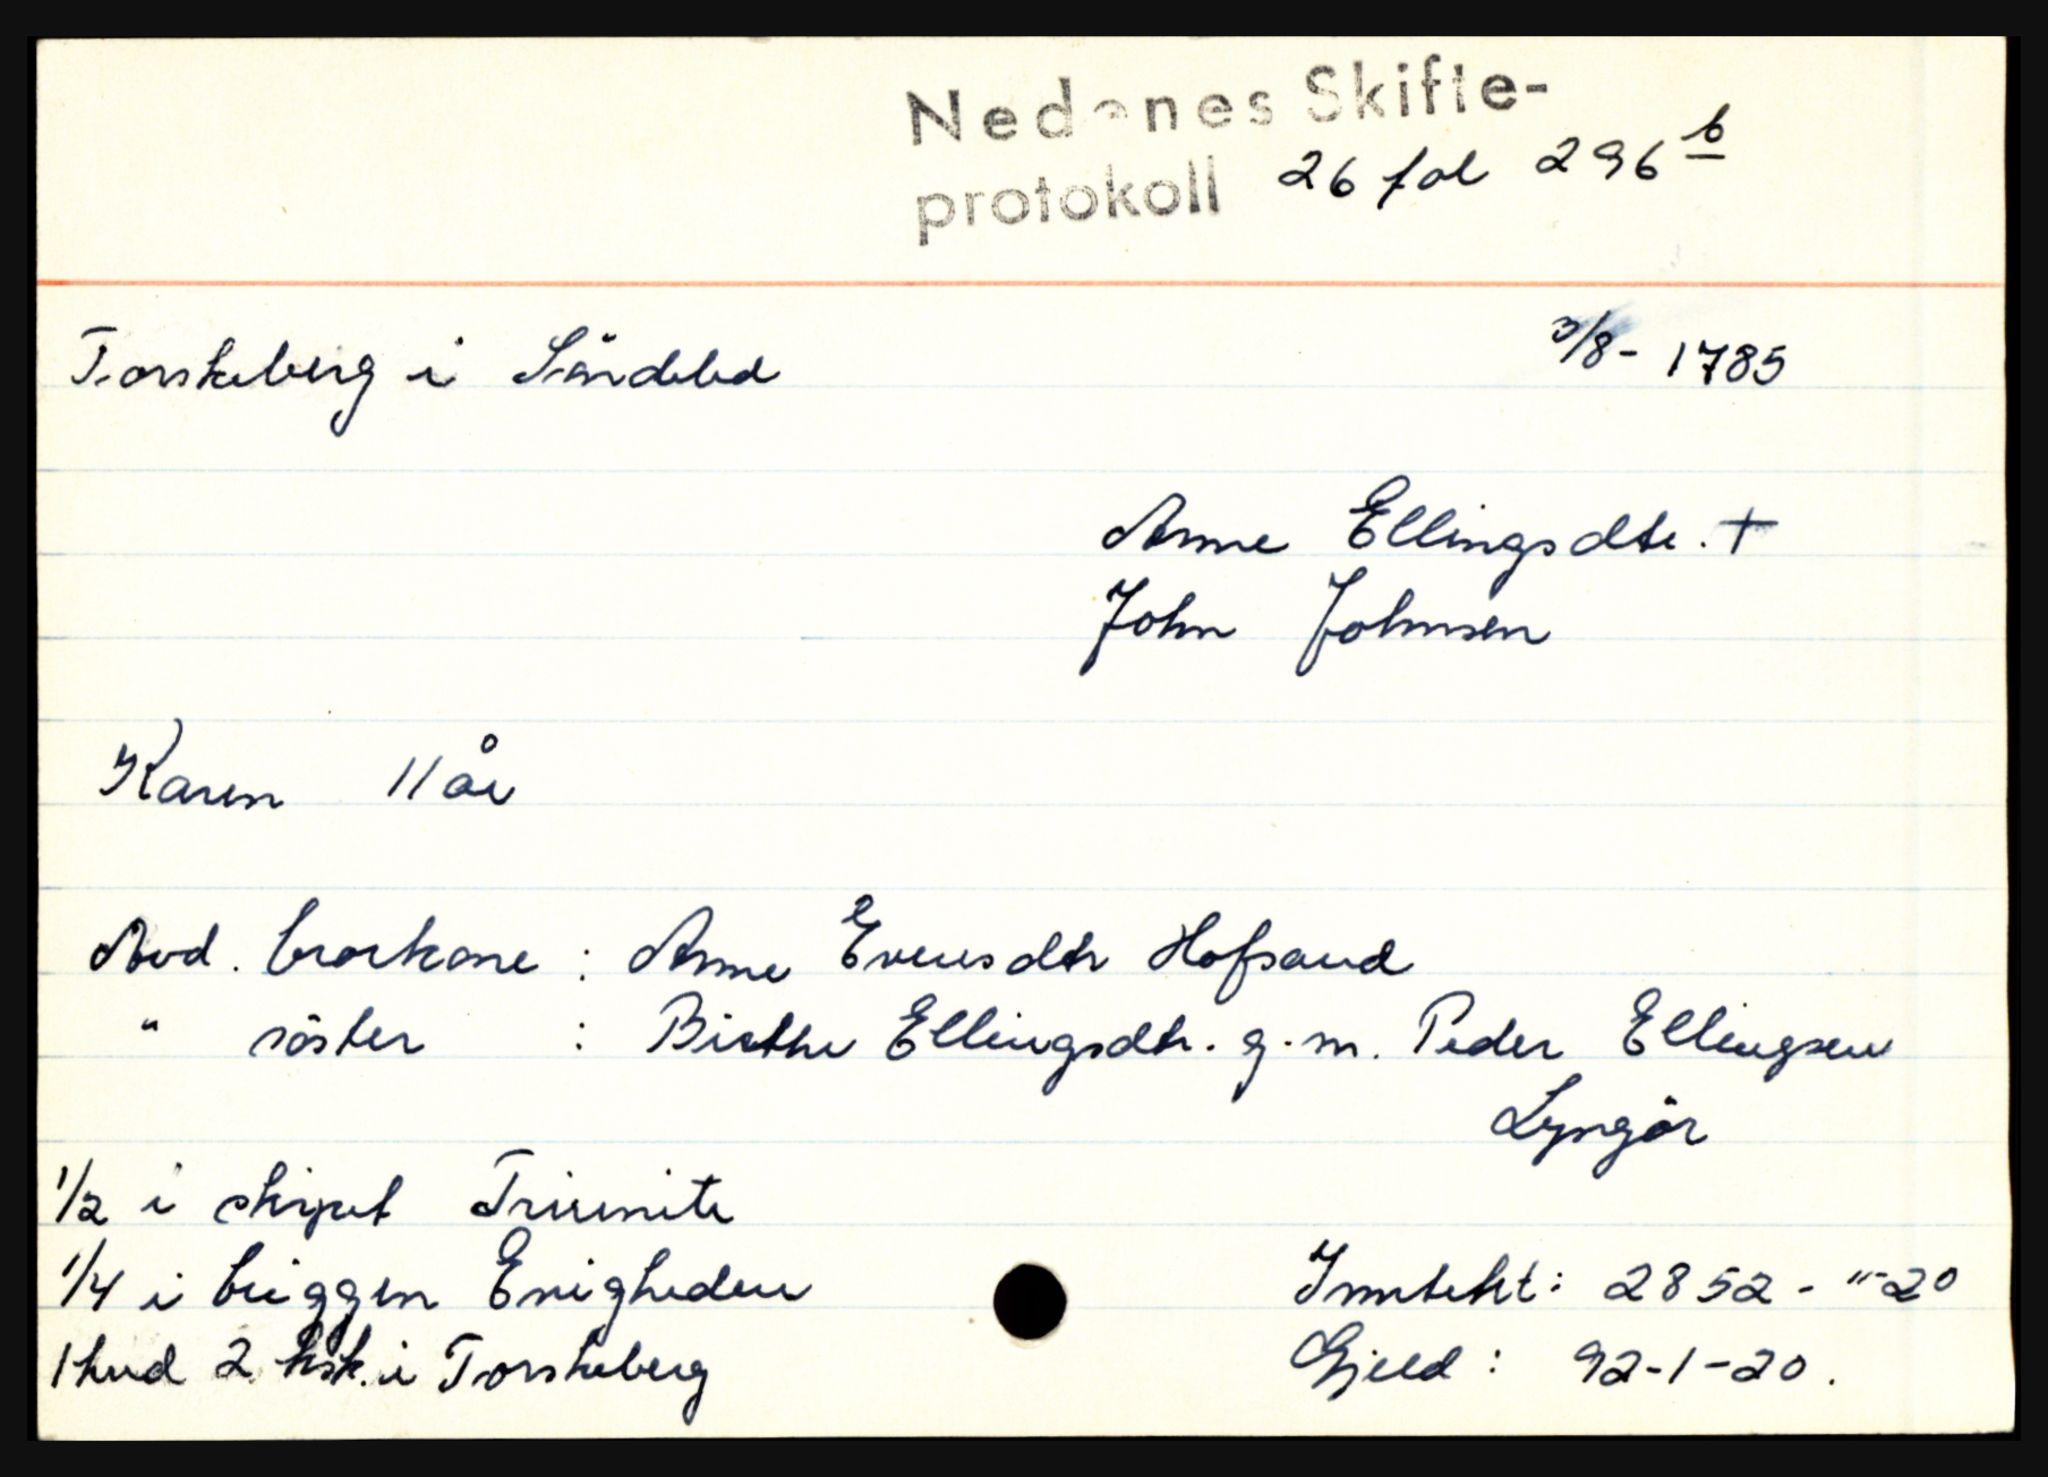 Nedenes Skifte-
protokoll 26 fol 296 b
Torskeberg i Söndeled 3/8 - 1785
Anne Ellingsdtr. +
John Johnsen
Karen 11 år
Avd. brorkone : Anne Evensdtr Hofsand
" söster : Birthe Ellingsdtr. g.m. Peder Ellingsen
Lyngör
1/2 i skipet Triunite
1/4 i briggen Enigheden Inntekt: 2852 - " - 20
1 hud 2 ksk. i Torskeberg Gjeld : 92-1-20.